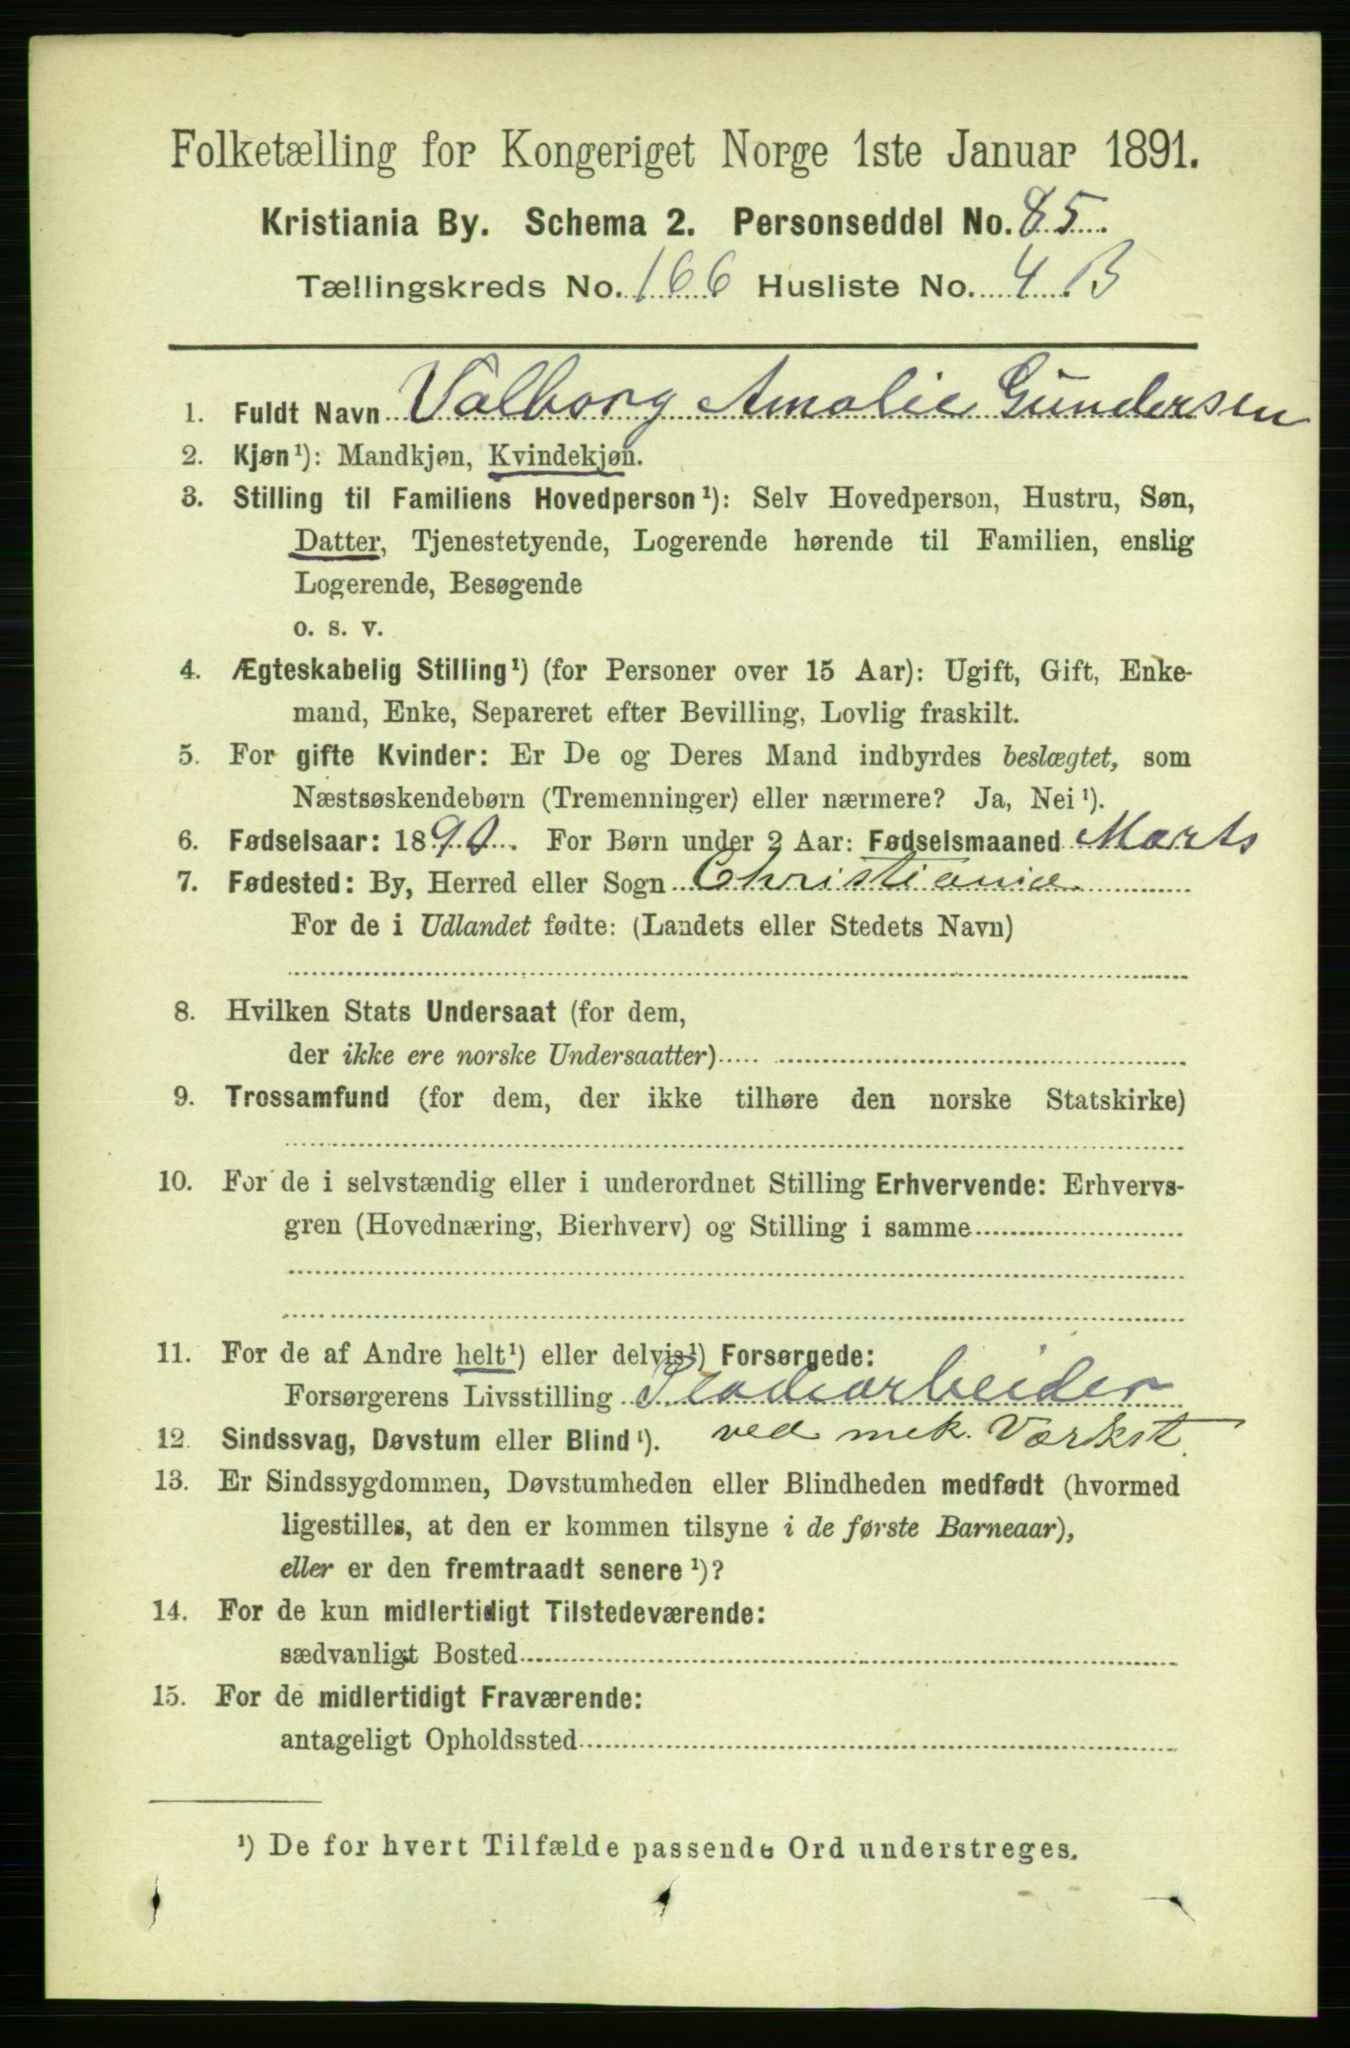 Folketælling for Kongeriget Norge 1ste Januar 1891.
Kristiania By. Schema 2. Personseddel No. 85.
Tællingskreds No. 166 Husliste No. 4 B
1. Fuldt Navn Valborg Amalie Gundersen
2. Kjøn¹): Mandkjøn, Kvindekjøn.
3. Stilling til Familiens Hovedperson¹): Selv Hovedperson, Hustru, Søn,
Datter, Tjenestetyende, Logerende hørende til Familien, enslig
Logerende, Besøgende
o. s. v.
4. Ægteskabelig Stilling¹) (for Personer over 15 Aar): Ugift, Gift, Enke-
mand, Enke, Separeret efter Bevilling, Lovlig fraskilt.
5. For gifte Kvinder: Er De og Deres Mand indbyrdes beslægtet, som
Næstsøskendebørn (Tremenninger) eller nærmere? Ja, Nei¹).
6. Fødselsaar: 1890. For Børn under 2 Aar: Fødselsmaaned Marts
7. Fødested: By, Herred eller Sogn Christiania
For de i Udlandet fødte: (Landets eller Stedets Navn)
8. Hvilken Stats Undersaat (for dem,
der ikke ere norske Undersaatter)
9. Trossamfund (for dem, der ikke tilhøre den norske Statskirke)
10. For de i selvstændig eller i underordnet Stilling Erhvervende: Erhvervs-
gren (Hovednæring, Bierhverv) og Stilling i samme
11. For de af Andre helt¹) eller delvis¹) Forsørgede:
Forsørgerens Livsstilling Pladearbeider
12. Sindssvag, Døvstum eller Blind¹). ved mek. Værkst.
13. Er Sindssygdommen, Døvstumheden eller Blindheden medfødt (hvormed
ligestilles, at den er kommen tilsyne i de første Barneaar),
eller er den fremtraadt senere¹)?
14. For de kun midlertidigt Tilstedeværende:
sædvanligt Bosted
15. For de midlertidigt Fraværende:
antageligt Opholdssted
¹) De for hvert Tilfælde passende Ord understreges.